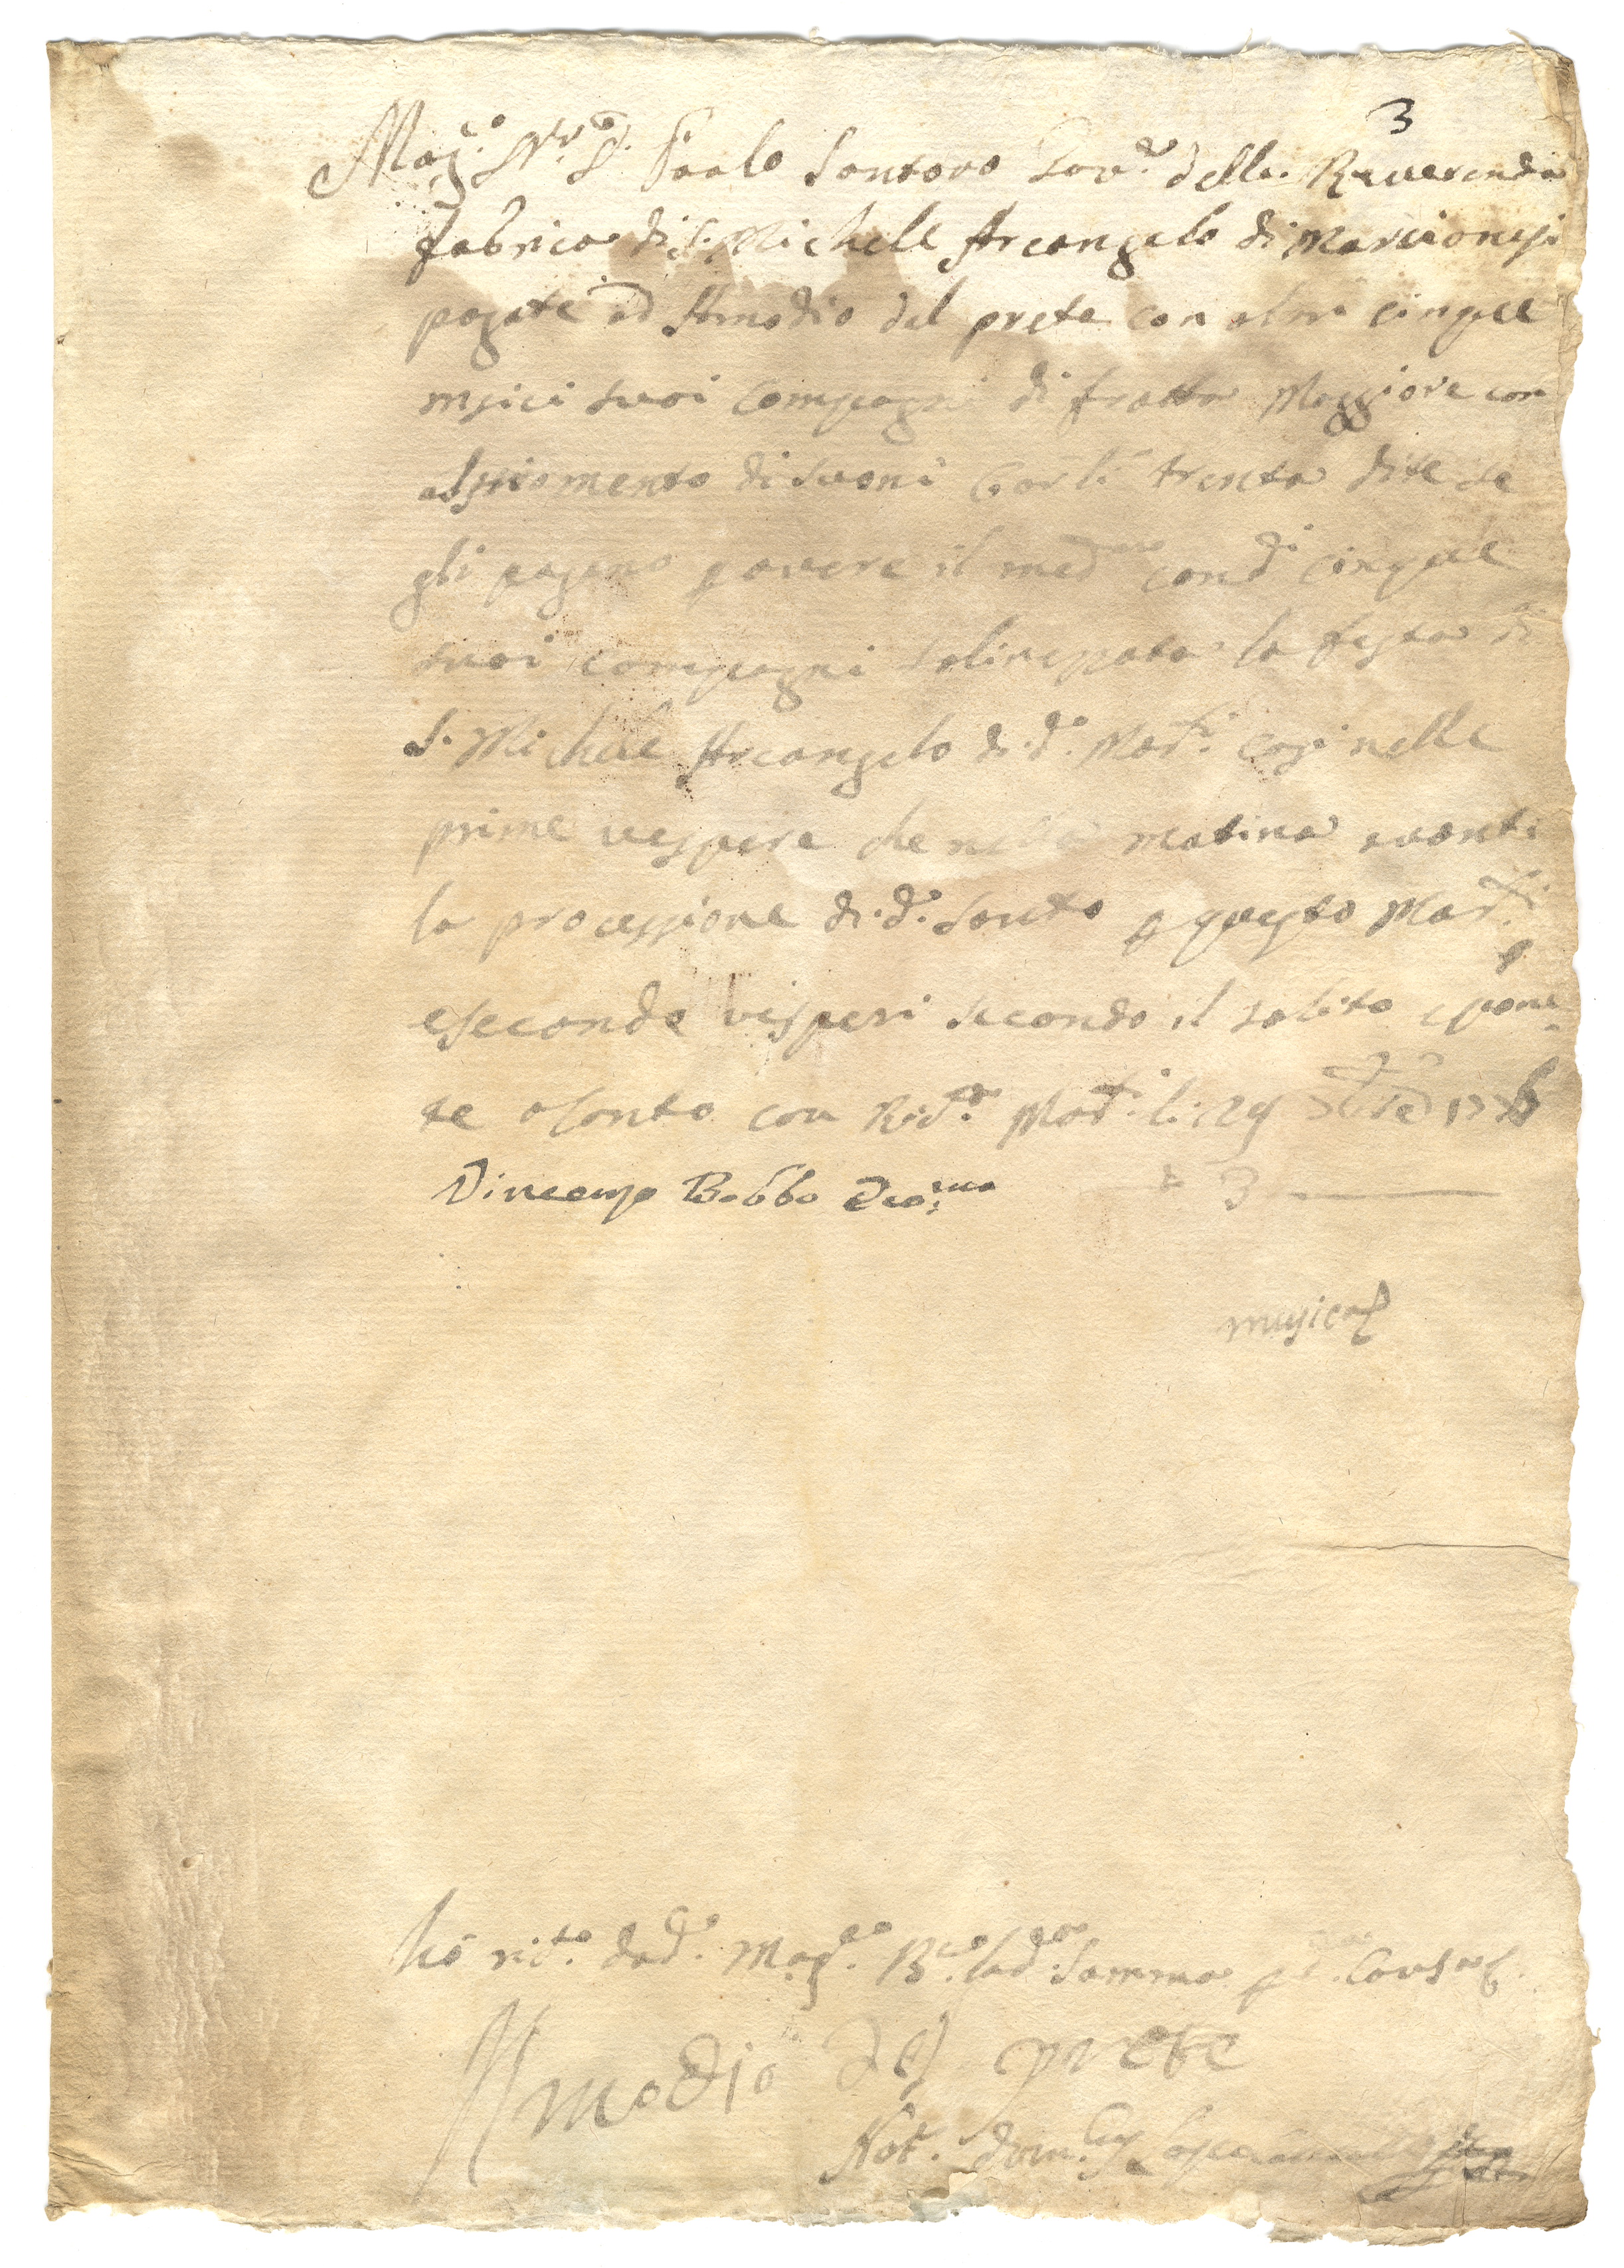 3
Mag.co Sr. S. Paolo Santoro Gov.re della Reverenda
fabrica di S. Michele Arcangelo di Marcionisi
pagate ad Amodio del prete con altri cinque
musici suoi Compagni di fratta Maggiore con
stromento di suoni Carl.i trenta dite se
gli pagano p avere il med.mo con d.i cinque
suoi compagni la festa di
S. Michele Arcangelo di d.o Mar.i cosi nelle
prime vespere che nella matina avanti
la processione di d.o Santo p questo Mar.i
e seconde vesperi secondo il solito e pone-
te a conto con R.da Mar.i li 29
Vincenzo Bobbo
3
musica
ho ric.to da d.o Mag.co la d.a Somma p Causa
Amodio del prete
Not.